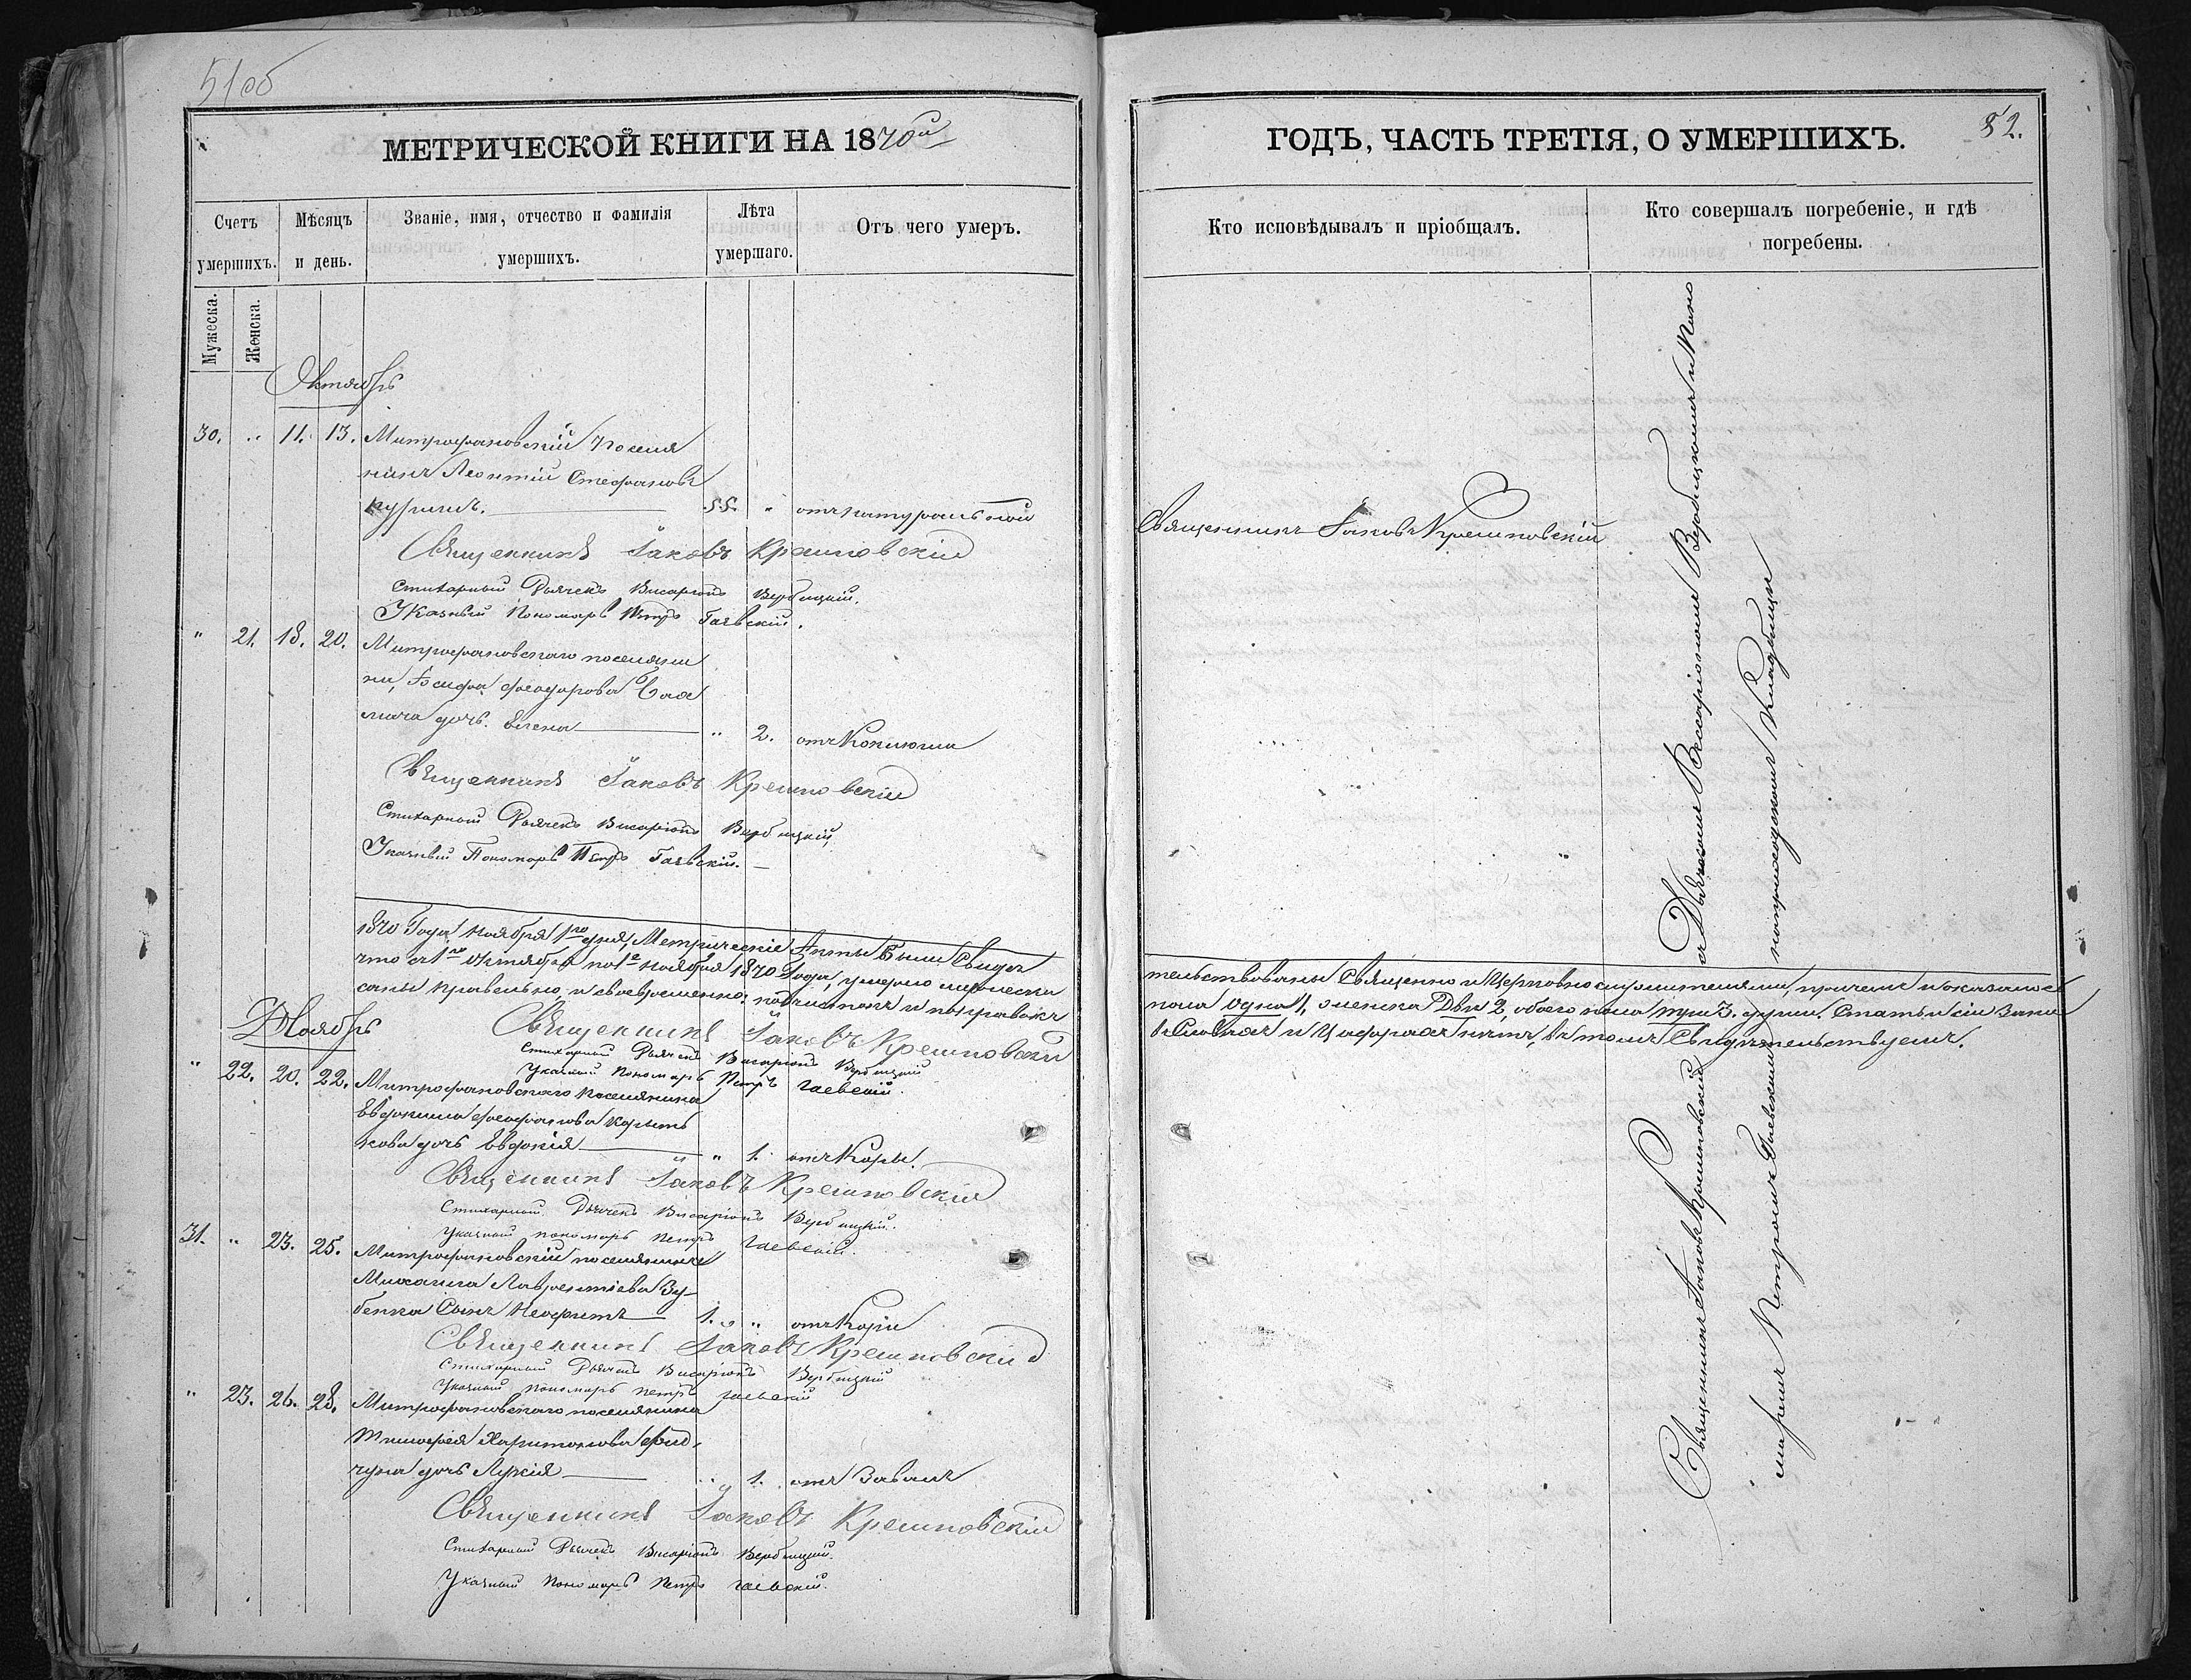 51об
МЕТРИЧЕСКОЙ КНИГИ НА 1870й
Счетъ умершихъ.
Мѣсяцъ и день.
Званіе, имя, отчество и фамилія умершихъ.
Лѣта умершаго.
Отъ чего умеръ.
Мужеска.
Женска.
Октябрь
30. " 11. 13. Митрофановскій поселя
нинъ Леонтій Стефановъ
55. " отъ натуральной
Священникъ Іаковъ Крешновскій
Стихарный Дьячекъ Висаріонъ Вербицкій.
Указный Пономарь Петръ Гаевскій.
" 21. 18. 20. Митрофановскаго поселяни
на, Іосифа Феодорова
дочь Елена " 2. отъ Коклюша
Священникъ Іаковъ Крешновскій
Стихарный Дьячекъ Висаріонъ Вербицкій,
Указный Пономарь Петръ Гаевскій.
1870 Года Ноября 1го дня, Метрическіе Акты Были Свидѣ
что съ 1го Октября по 1е Ноября 1870 Года, умерло мужеска
саны правельно и своевременно; подчистокъ и поправокъ
Священникъ Іаковъ Крешновскій
Стихарный Дьячекъ Висаріонъ Вербицкій
Указный Пономарь Петръ Гаевскій.
Ноябрь
" 22. 20. 22. Митрофановскаго поселянина
Евдокима Феофанова Корыт
кова дочь Евдокія " 1. отъ Кори.
Священникъ Іаковъ Крешновскій
Стихарный Дьячекъ Висаріонъ Вербицкій.
Указный пономарь Петръ Гаевскій.
31. " 23. 25. Митрофановскій поселянина
Михаила Лаврентіева Зу-
бенка Сынъ Неофитъ 1. " отъ Кори
Священникъ Іаковъ Крешновскій
Стихарный Дьячекъ Висаріонъ Вербицкій
Указный пономарь Петръ Гаевскій
" 23. 26. 28. Митрофановскаго поселянина
Тимофея Харитонова
дочь Лукія " 1. отъ Завалъ
Священникъ Іаковъ Крешновскій
Стихарный Дьячекъ Висаріонъ Вербицкій.
Указный Пономарь Петръ Гаевскій.
ГОДЪ, ЧАСТЬ ТРЕТІЯ, О УМЕРШИХЪ.
52.
Кто исповѣдывалъ и пріобщалъ.
Кто совершалъ погребеніе, и гдѣ погребены.
Священникъ Іаковъ Крешновскій
тельствованы Священно и Церковнослужителями, причемъ и оказалось
пола Одна 1, женска Двѣ 2, обоего пола три 3. души. Статьи сіи Запи
въ Словахъ и Цыфрахъ нѣтъ, въ томъ Свидѣтельствуемъ.
Священникъ Іаковъ Крешновскій
съ Дьячкомъ Виссаріономъ Вербицкимъ и Поно
маремъ Петромъ Гаевскимъ
на приходскомъ Кладбищѣ